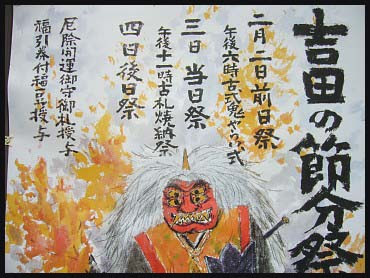 吉田の節分祭
二月二日前日祭
午後六時古式鬼やらい式
三日当日祭
午後十一時古札焼納祭
四日後日祭
厄除開運御守御札授与
福引券付福豆授与